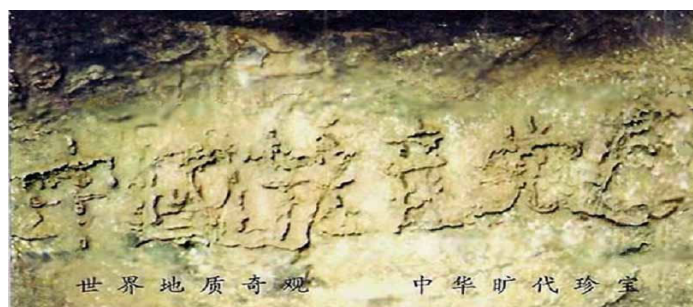 中国共産党亡
世界地质奇观 中华旷代珍宝